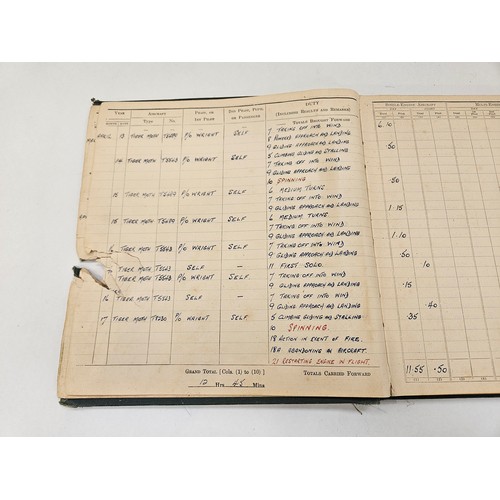 YEAR AIRCRAFT PILOT, OR 1ST PILOT 2ND PILOT, PUPIL OR PASSENGER DUTY (INCLUDING RESULTS AND REMARKS) SINGLE-ENGINE AIRCRAFT
TYPE NO.
TOTALS BROUGHT FORWARD 6.10
APRIL 13 TIGER MOTH P/O WRIGHT SELF 7 TAKING OFF INTO WIND
8 POWERED APPROACH AND LANDING
9 GLIDING APPROACH AND LANDING .50
14 TIGER MOTH T5563 P/O WRIGHT SELF 5 CLIMBING GLIDING AND STALLING
7 TAKING OFF INTO WIND
9 GLIDING APPROACH AND LANDING
10 SPINNING .50
15 TIGER MOTH P/O WRIGHT SELF 6 MEDIUM TURNS
7 TAKING OFF INTO WIND
9 GLIDING APPROACH AND LANDING 1.15
15 TIGER MOTH P/O WRIGHT SELF 6 MEDIUM TURNS
7 TAKING OFF INTO WIND
9 GLIDING APPROACH AND LANDING 1.10
TIGER MOTH T5563 P/O WRIGHT SELF 7 TAKING OFF INTO WIND
9 GLIDING APPROACH AND LANDING .50
TIGER MOTH T5563 SELF — 11 FIRST SOLO .10
TIGER MOTH T5563 P/O WRIGHT SELF 7 TAKING OFF INTO WIND
9 GLIDING APPROACH AND LANDING .15
16 TIGER MOTH T5563 SELF — 7 TAKING OFF INTO WIND
9 GLIDING APPROACH AND LANDING .40
17 TIGER MOTH P/O WRIGHT SELF 5 CLIMBING GLIDING AND STALLING .35
10 SPINNING.
18 ACTION IN EVENT OF FIRE.
18A ABANDONING AN AIRCRAFT.
21 RESTARTING ENGINE IN FLIGHT.
GRAND TOTAL [Cols. (1) to (10)] TOTALS CARRIED FORWARD 11.55 .50
12 Hrs 45 Mins